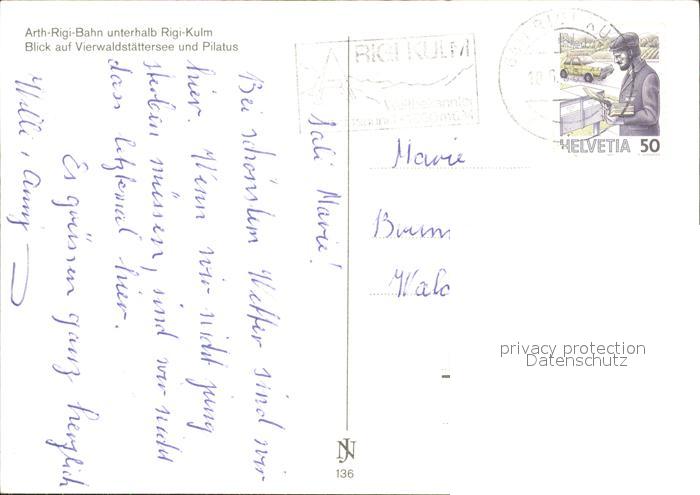 Arth-Rigi-Bahn unterhalb Rigi-Kulm
Blick auf Vierwaldstättersee und Pilatus
Sali Marie!
Bei schönstem Wetter sind wir
hier. Wenn wir nicht jung
sterben müssen, sind wir nicht
dass letztemal hier.
Es grüssen ganz herzlich
Willi, Anny
RIGI KULM
HELVETIA 50
Marie
privacy protection
Datenschutz
NJ
136